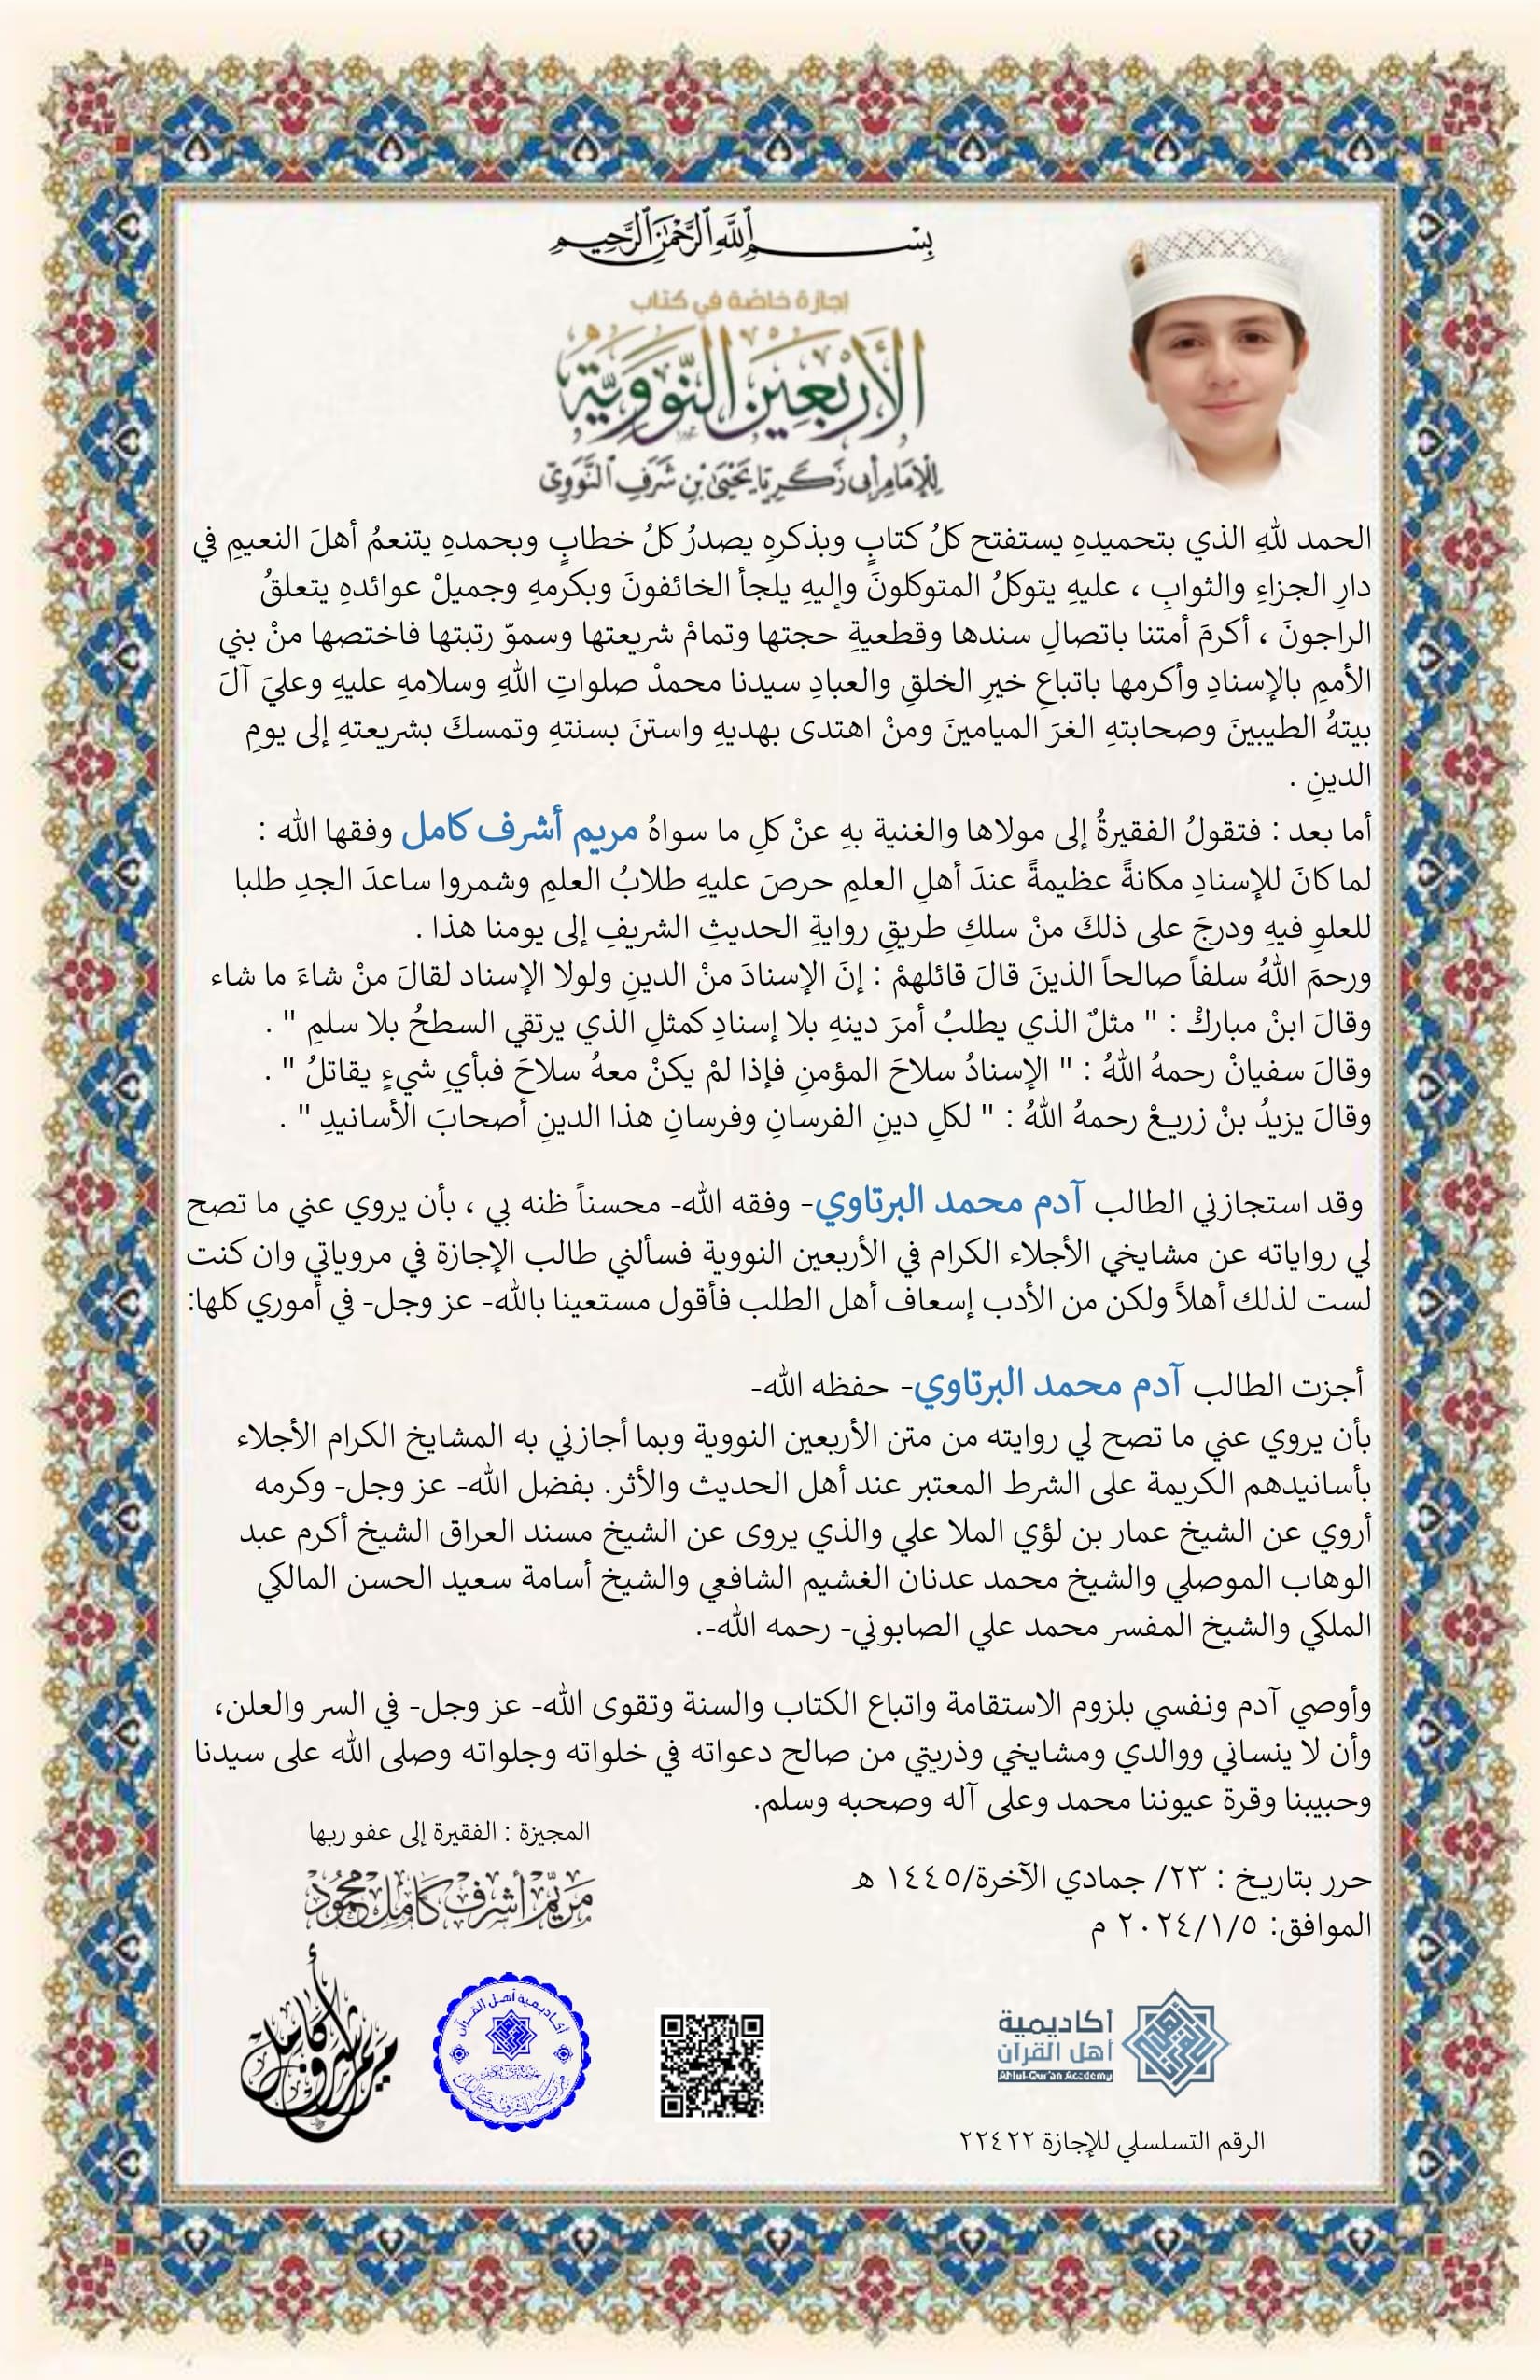 بِسْــــمِ ٱللَّهِ ٱلرَّحْمَٰنِ ٱلرَّحِيمِ
إجازة خاصة في كتاب
الأَرْبَعِين النَّوَوِيَّة
لِلْإِمَامِ أَبِي زَكَرِيَّا يَحْيَىٰ بْنِ شَرَفٍ ٱلنَّوَوِيّ
الحمد للهِ الذي بتحميدهِ يستفتح كلُ كتابٍ وبذكرهِ يصدرُ كلُ خطابٍ وبحمدهِ يتنعمُ أهلَ النعيمِ في
دارِ الجزاءِ والثوابِ ، عليهِ يتوكلُ المتوكلونَ وإليهِ يلجأ الخائفونَ وبكرمهِ وجميلْ عوائدهِ يتعلقُ
الراجونَ ، أكرمَ أمتنا باتصالِ سندها وقطعيةِ حجتها وتمامْ شريعتها وسموّ رتبتها فاختصها منْ بني
الأممِ بالإسنادِ وأكرمها باتباعِ خيرِ الخلقِ والعبادِ سيدنا محمدْ صلواتِ اللهِ وسلامهِ عليهِ وعليَ آلَ
بيتهُ الطيبينَ وصحابتهِ الغرَ الميامينَ ومنْ اهتدى بهديهِ واستنَ بسنتهِ وتمسكَ بشريعتهِ إلى يومِ
الدينِ .
أما بعد : فتقولُ الفقيرةُ إلى مولاها والغنية بهِ عنْ كلِ ما سواهُ مريم أشرف كامل وفقها الله :
لما كانَ للإسنادِ مكانةً عظيمةً عندَ أهلِ العلمِ حرصَ عليهِ طلابُ العلمِ وشمروا ساعدَ الجدِ طلبا
للعلوِ فيهِ ودرجَ على ذلكَ منْ سلكِ طريقِ روايةِ الحديثِ الشريفِ إلى يومنا هذا .
ورحمَ اللهُ سلفاً صالحاً الذينَ قالَ قائلهمْ : إنَ الإسنادَ منْ الدينِ ولولا الإسناد لقالَ منْ شاءَ ما شاء
وقالَ ابنْ مباركْ : " مثلٌ الذي يطلبُ أمرَ دينهِ بلا إسنادِ كمثلِ الذي يرتقي السطحُ بلا سلمِ " .
وقالَ سفيانْ رحمهُ اللهُ : " الإسنادُ سلاحَ المؤمنِ فإذا لمْ يكنْ معهُ سلاحَ فبأيِ شيءٍ يقاتلُ " .
وقالَ يزيدُ بنْ زريعْ رحمهُ اللهُ : " لكلِ دينِ الفرسانِ وفرسانِ هذا الدينِ أصحابَ الأسانيدِ " .
وقد استجازني الطالب آدم محمد البرتاوي- وفقه الله- محسناً ظنه بي ، بأن يروي عني ما تصح
لي رواياته عن مشايخي الأجلاء الكرام في الأربعين النووية فسألني طالب الإجازة في مروياتي وان كنت
لست لذلك أهلاً ولكن من الأدب إسعاف أهل الطلب فأقول مستعينا بالله- عز وجل- في أموري كلها:
أجزت الطالب آدم محمد البرتاوي- حفظه الله-
بأن يروي عني ما تصح لي روايته من متن الأربعين النووية وبما أجازني به المشايخ الكرام الأجلاء
بأسانيدهم الكريمة على الشرط المعتبر عند أهل الحديث والأثر. بفضل الله- عز وجل- وكرمه
أروي عن الشيخ عمار بن لؤي الملا علي والذي يروى عن الشيخ مسند العراق الشيخ أكرم عبد
الوهاب الموصلي والشيخ محمد عدنان الغشيم الشافعي والشيخ أسامة سعيد الحسن المالكي
الملكي والشيخ المفسر محمد علي الصابوني- رحمه الله-.
وأوصي آدم ونفسي بلزوم الاستقامة واتباع الكتاب والسنة وتقوى الله- عز وجل- في السر والعلن،
وأن لا ينساني ووالدي ومشايخي وذريتي من صالح دعواته في خلواته وجلواته وصلى الله على سيدنا
وحبيبنا وقرة عيوننا محمد وعلى آله وصحبه وسلم.
المجيزة : الفقيرة إلى عفو ربها
مَرْيَم أشرف كَامِل مَحمُود
حرر بتاريخ : ٢٣/ جمادي الآخرة/١٤٤٥ هـ
الموافق: ٢٠٢٤/١/٥ م
أكاديمية
أهل القرآن
Ahlul-Qur'an Academy
أكاديمية أهل القرآن
مريم أشرف كامل
الرقم التسلسلي للإجازة ٢٢٤٢٢